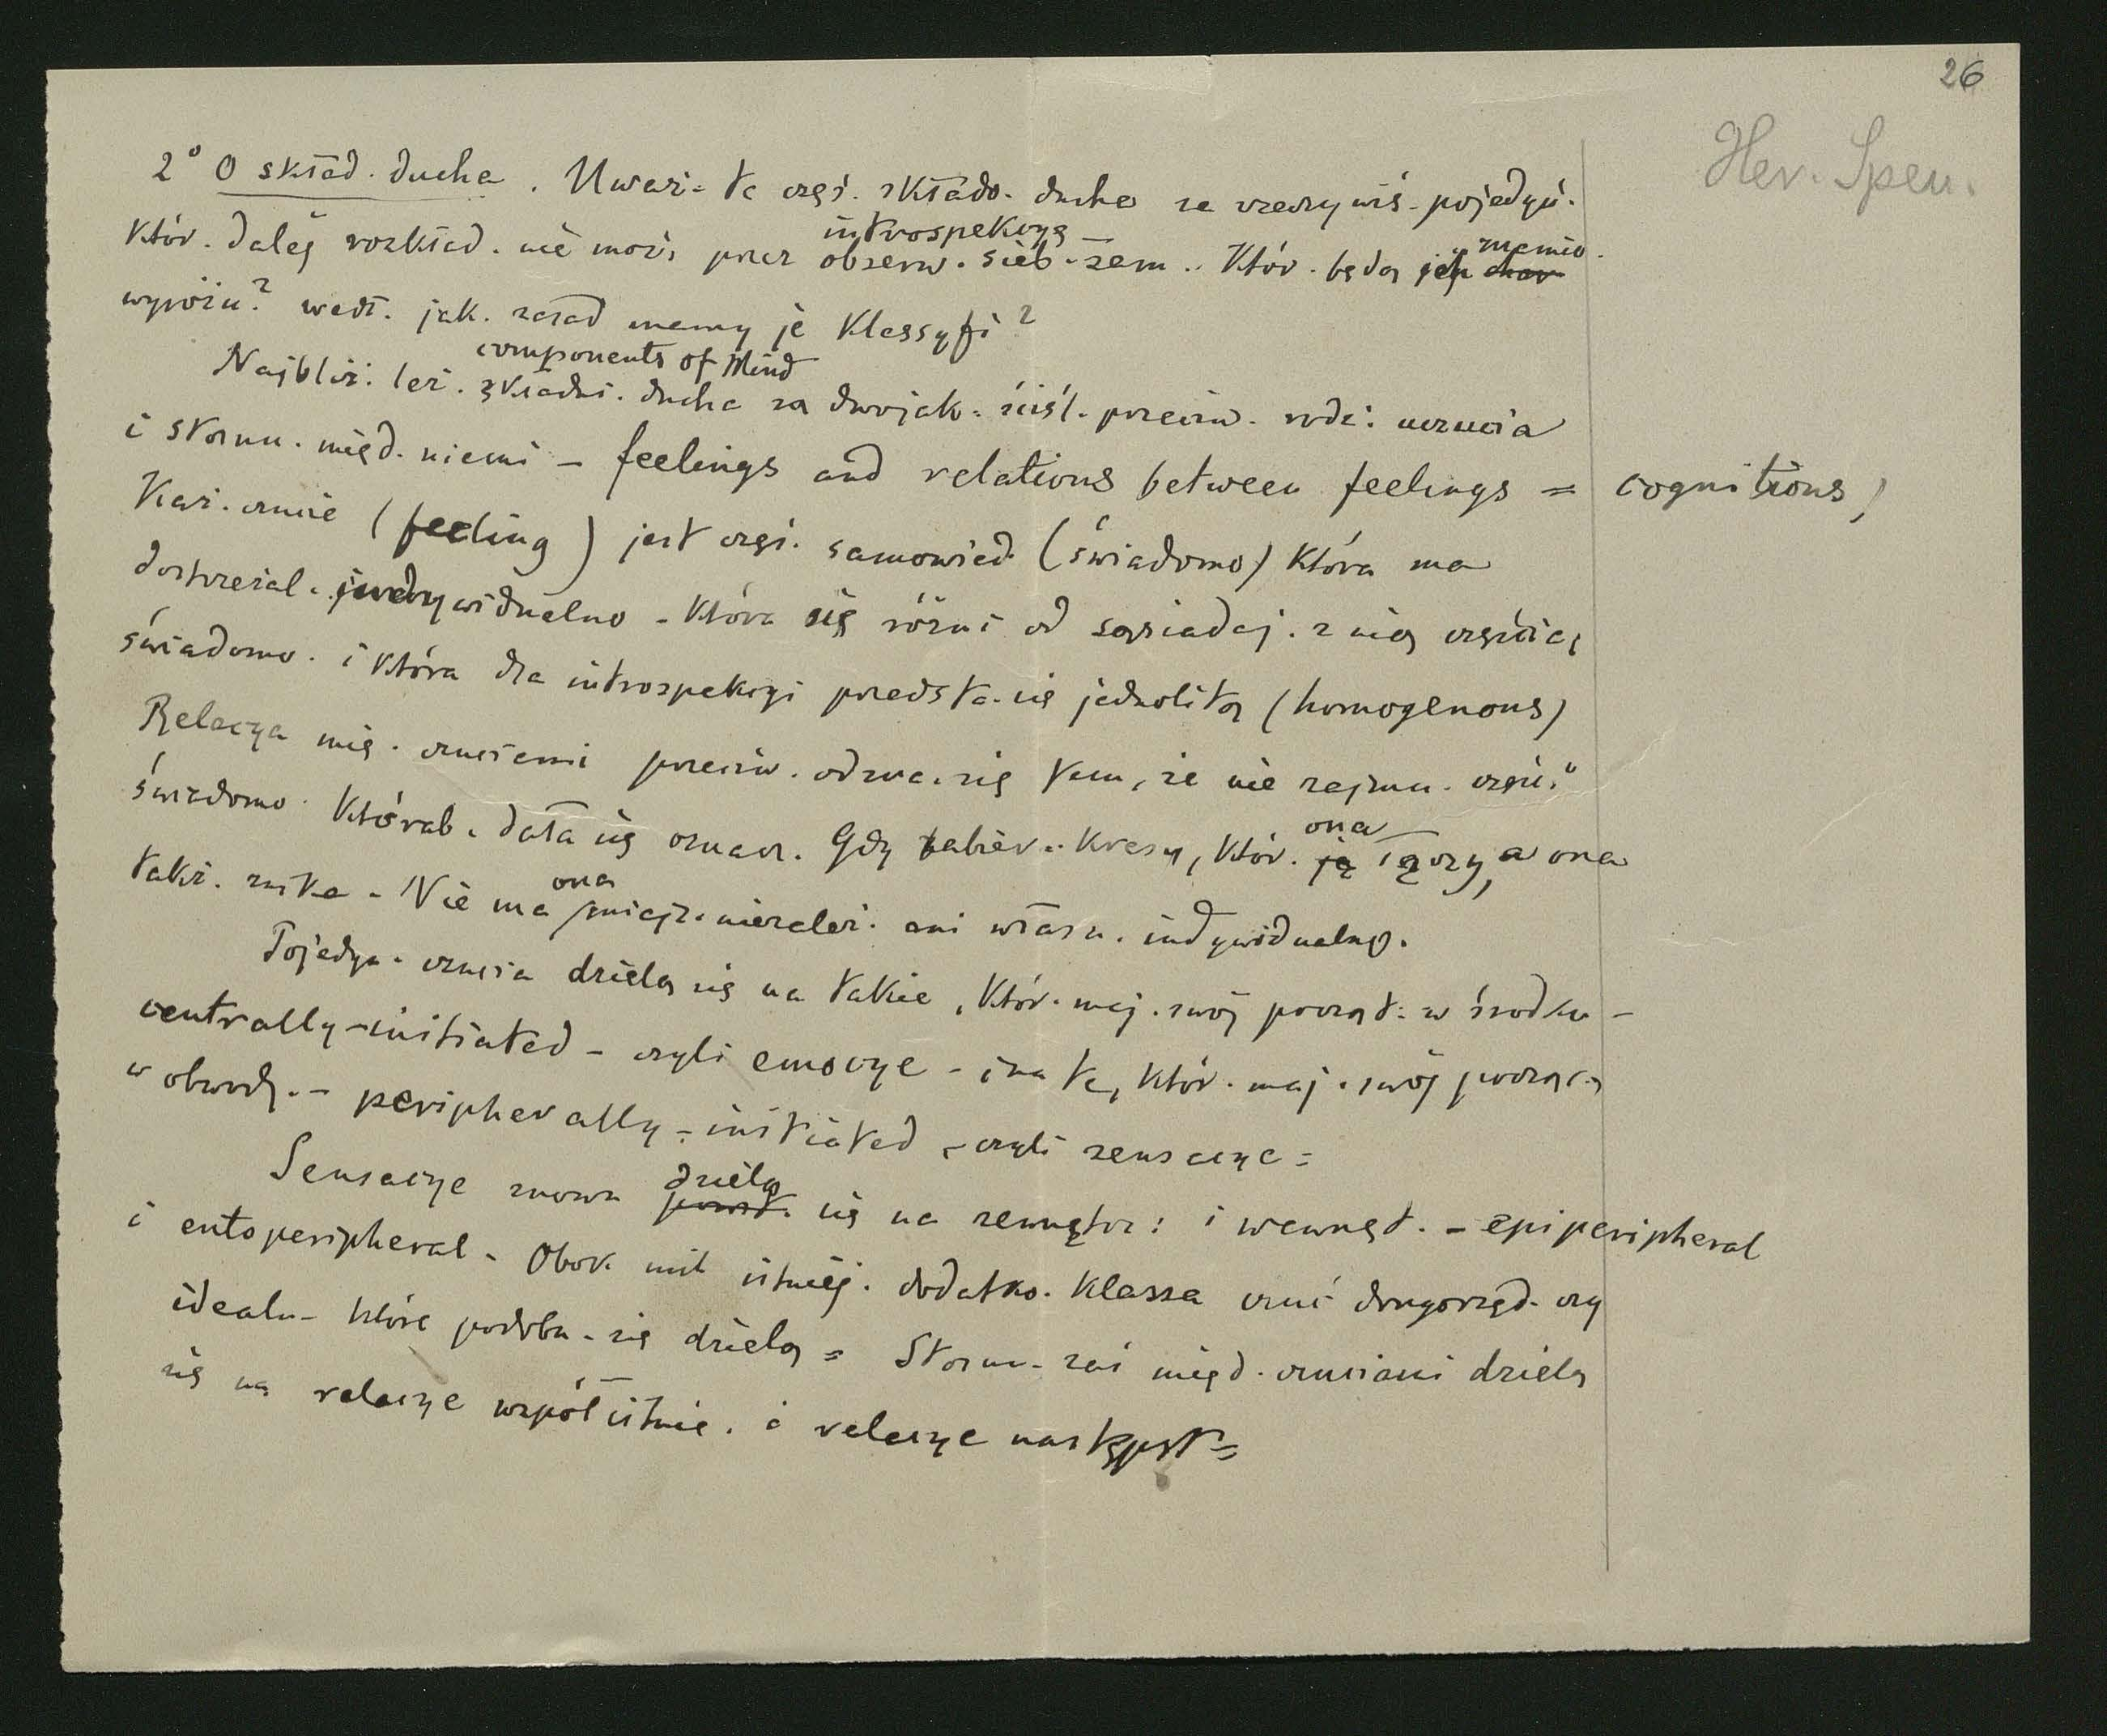 26
Her. Spen.
2° O skład. ducha. Uważ. te częś. składo. ducha za rzeczywiś. pojedyń.
introspekcyą
któr. daléj rozkład. nie moż. przez obserw. sieb. sam.. Któr. będą ich znamio.
wyróżn? wedł. jak. zasad mamy je klassyfi?
components of Mind
Najbliż. leż. składni. ducha są dwojak. ściśl. przeciw. rodz: uczucia
i stosun. międ. niemi – feelings and relations between feelings = cognitions,
Każ. czucie (feeling) jest częś. samowied. (świadomo) która ma
dostrzegal. indywidualno. która się różni od sąsiadaj. z nią częścią
świadomo. i która dla introspekcyi przedsta. się jednolitą (homogenous)
Relacya mię. czuciami przeciw. odzna. się tem, że nie zajmu. częśc.
świadomo. któraby. dała się oznacz. Gdy zabier.. kresy, któr. ona łączy, a ona
ona
takż. znika. Nie ma miejs. niezależ. ani własn. indywidualno.
Pojedyn. czucia dzielą się na takie, któr. maj. swój począt. w środku –
centrally-initiated – czyli emocye – i na te, któr. maj. swój począt.
w obwodz. – peripherally-initiated – czyli sensacye =
Sensacye znowu dzielą się na zewnętrz: i wewnęt. – epiperipheral
i entoperipheral. Obok nich istniej. dodatko. klassa czuć drugorzęd. czy
idealn. które podobn. się dzielą = Stosun. zaś międ. czuciami dzielą
się na relacye współistnie. i relacye następst=